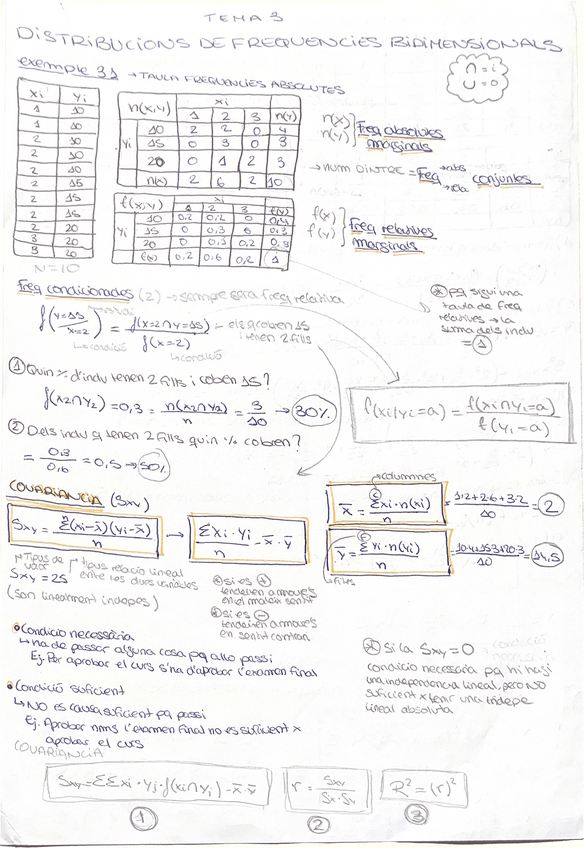 TEMA 3
DISTRIBUCIONS DE FREQUENCIES BIDIMENSIONALS
exemple 3.1 → TAULA FREQUENCIES ABSOLUTES
∩ = i
∪ = o
xi yi
1 10
1 10
2 10
2 10
2 15
2 15
2 15
2 20
3 20
3 20
N=10
n(x,y) xi
1 2 3 n(y)
yi 10 2 2 0 4
15 0 3 0 3
20 0 1 2 3
n(x) 2 6 2 10
n(x)
n(y)
Freq absolutes
marginals
→ num DINTRE = Freq conjuntes
abs
rela
f(x,y) xi
1 2 3 f(y)
yi 10 0,2 0,2 0 0,4
15 0 0,3 0 0,3
20 0 0,1 0,2 0,3
f(x) 0,2 0,6 0,2 1
f(x)
f(y)
Freq relatives
marginals
Freq condicionades (2) → sempre serà freq relativa
* pq sigui una
taula de freq
relatives → la
suma dels indu
= 1
f(y=15/x=2) = f(x=2∩y=15)/f(x=2) → els q cobren 15
i tenen 2 fills
↳ condició
↳ condició
① Quin % d'indu tenen 2 fills i cobren 15?
f(x2∩y2) = 0,3 = n(x2∩y2)/n = 3/10 → 30%
f(xi/yi=a) = f(xi∩yi=a)/f(yi=a)
② Dels indu q tenen 2 fills quin % cobren?
= 0,3/0,6 = 0,5 → 50%
COVARIÀNCIA (Sxy)
Sxy = Σ(xi-x̄)(yi-ȳ)/n → Σxi·yi/n - x̄·ȳ
columnes
x̄ = Σxi·n(xi)/n = 1·2+2·6+3·2/10 = 2
ȳ = Σyi·n(yi)/n = 10·4+15·3+20·3/10 = 14,5
files
Tipus de
Sxy = 25
tipus relació lineal
entre las dues variables
(son linealment indepes)
* si es +
tendeixen a moure's
en el mateix sentit
* si es −
tendeixen a moure's
en sentit contrari
• Condició necessària
↳ ha de passar alguna cosa pq allo passi
Ej. Per aprobar el curs s'ha d'aprobar l'examen final
* Si la Sxy = 0
condició necessaria pq hi hagi
una independencia lineal, pero NO
suficient x tenir una indepe
lineal absoluta
• Condició suficient
↳ NO es causa suficient pq passi
Ej. Aprobar nms l'examen final no es suficient x
aprobar el curs
COVARIÀNCIA
Sxy = ΣΣxi·yj·f(xi∩yj) - x̄·ȳ
r = Sxy/Sx·Sy
R² = (r)²
① ② ③